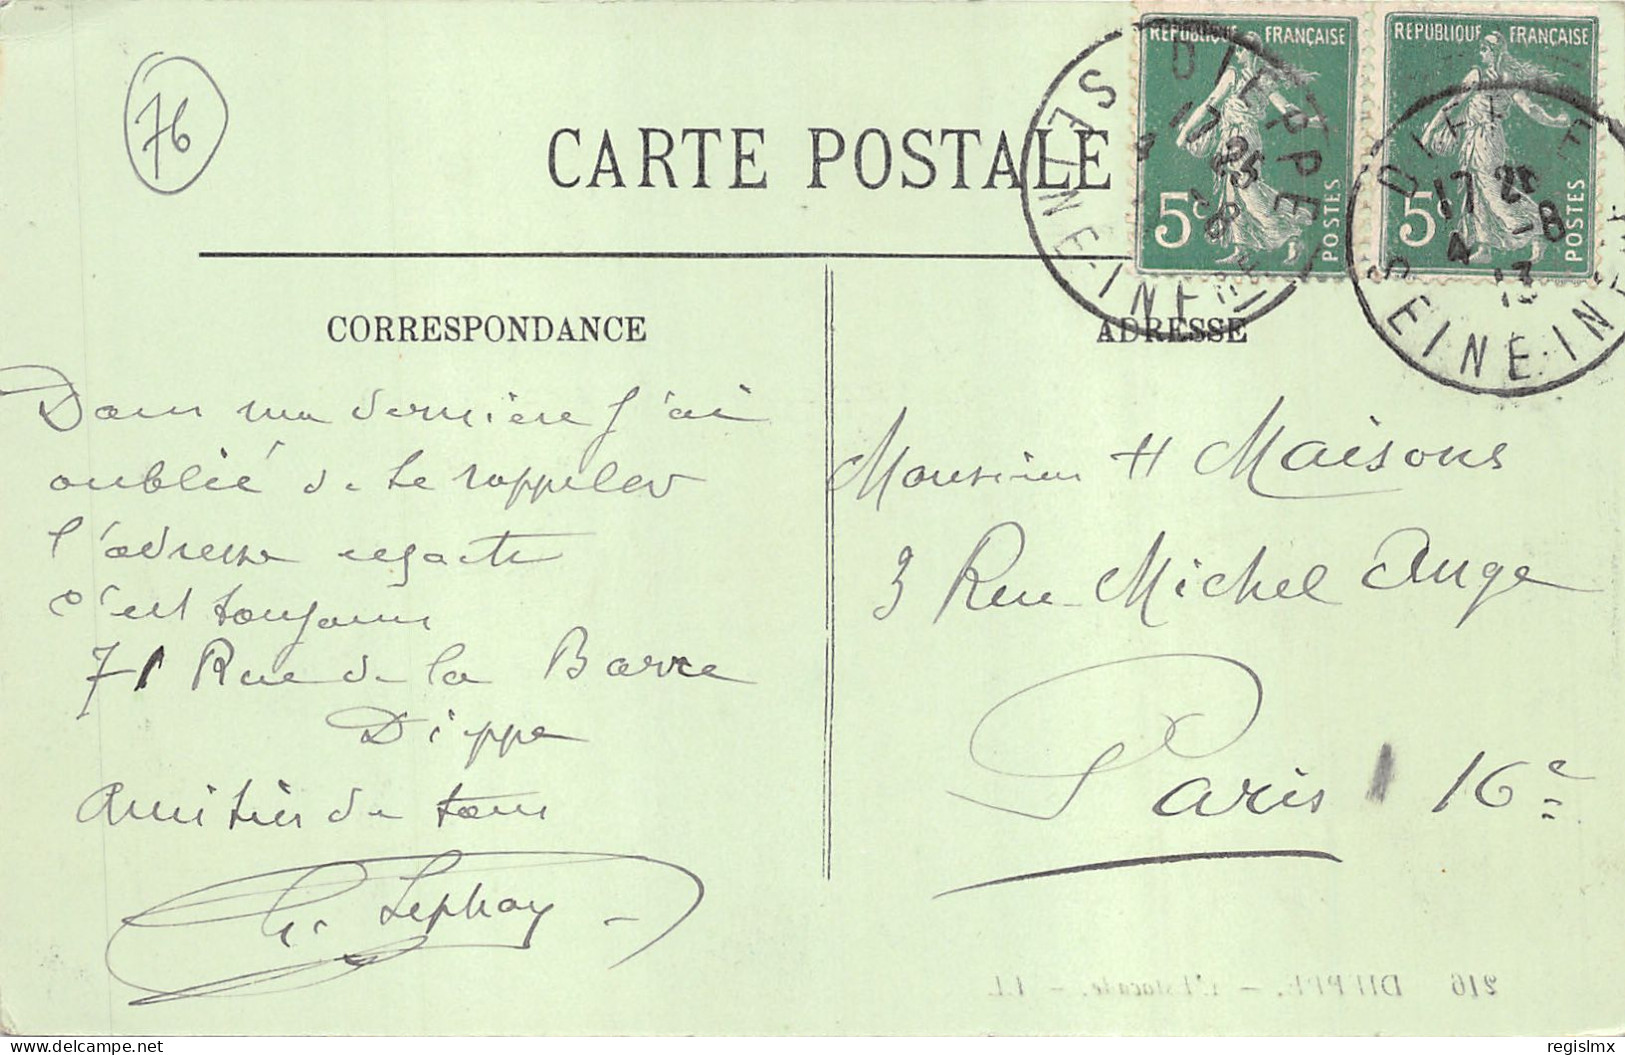 76
CARTE POSTALE
REPUBLIQUE FRANÇAISE
5c POSTES
REPUBLIQUE FRANÇAISE
5c POSTES
DIEPPE
17 25
4 -8
SEINE-INFRE
DIEPPE
17 25
4 -8
13
SEINE-IN
CORRESPONDANCE
Dans ma dernière j'ai
oublié de te rappeler
l'adresse exacte
c'est toujours
71 Rue de la Barre
Dieppe
Amitiés de tous
G. Lephay
ADRESSE
Monsieur H Maisons
3 Rue Michel Ange
Paris 16e
216 DIEPPE. - L'Estacade. - LL.
delcampe.net
regislmx